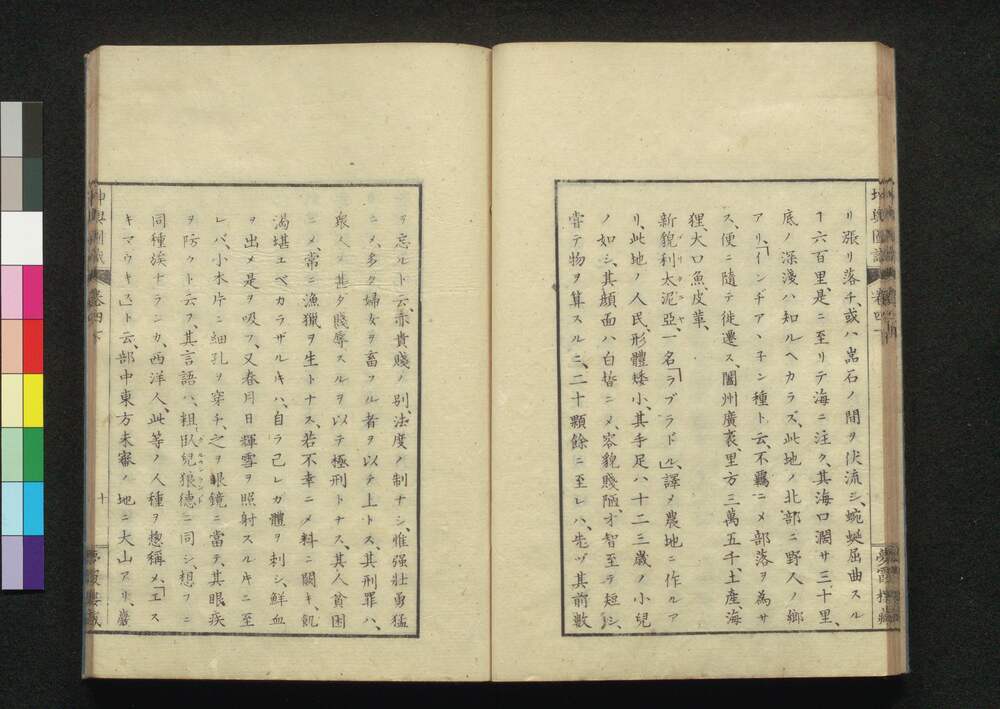 坤輿圖識
卷四下
夢霞樓藏
リ漲リ落チ、或ハ嵓石ノ間ヲ伏流シ、蜿蜒屈曲スル
ヿ六百里、是ニ至リテ海ニ注ク、其海口濶サ三十里、
底ノ深淺ハ知ルヘカラズ、此地ノ北部ニ野人ノ鄉
アリ、「インヂアヽチン種ト云、不羈ニメ部落ヲ為サ
ス、便ニ隨テ徙遷ス、闔州廣袤里方三萬五千、土産、海
狸、大口魚、皮革、
新貌利太泥亞、一名「ラブラドル、」譯メ農地ニ作ルア
リ、此地ノ人民、形體矮小、其手足ハ十二三歲ノ小兒
ノ如シ、其顏面ハ白皙ニメ、容貌賤陋、才智至テ短シ、
嘗テ物ヲ算スルニ、二十顆餘ニ至レハ、先ヅ其前數
ヲ忘ルト云、赤貴賤ノ別、法度ノ制ナシ、惟强壯勇猛
ニメ、多ク婦女ヲ畜フル者ヲ以テ上トス、其刑罪ハ、
眾人ノ甚ダ賤辱スルヲ以テ極刑トナス、其人貧困
ニメ、常ニ漁獵ヲ生トナス、若不幸ニメ料ニ闕キ、飢
渴堪エベカラザルキハ、自ラ己レガ體ヲ刺シ、鮮血
ヲ出メ是ヲ吸フ、又春月日輝雪ヲ照射スルキニ至
レバ、小木片ニ細孔ヲ穿チ、之ヲ眼鏡ニ當テ、其眼疾
ヲ防クト云フ、其言語ハ、粗臥兒狼德ニ同シ、想フニ
同種族ナランカ、西洋人、此等ノ人種ヲ摠稱メ、「エス
キマウキスト云、部中東方未審ノ地ニ大山アリ、巖
坤輿圖識
卷四下
十
夢霞樓藏